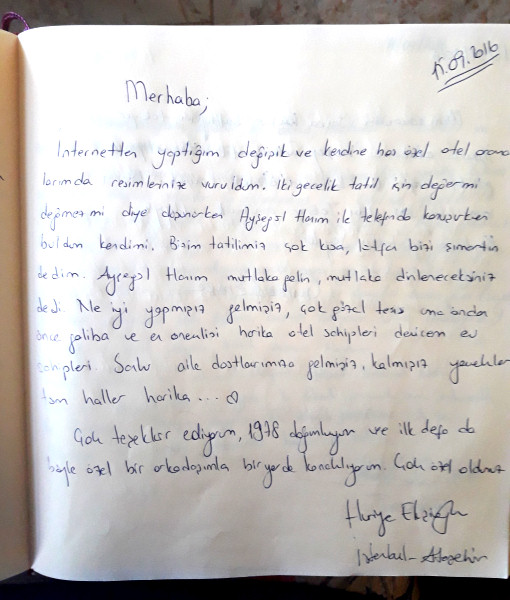 15.09.2016
Merhaba;
İnternetten yaptığım değişik ve kendine has özel otel arama
larımda resimlerinize vuruldum. İki gecelik tatil için değermi
değmezmi diye düşünürken Ayşegül Hanım ile telefonda konuşurken
buldum kendimi. Bizim tatilimiz çok kısa, lütfen bizi
dedim. Ayşegül Hanım mutlaka gelin, mutlaka dinleneceksiniz
dedi. Ne iyi yapmışız gelmişiz, çok güzel
önce galiba ve en önemlisi harika otel sahipleri dericem ev
sahipleri. Sanki aile dostlarımıza gelmişiz, kalmışız yemekler
tam haller harika ... ♡
Çok teşekkür ediyorum, 1978 doğumluyum ve ilk defa da
böyle özel bir arkadaşımla bir yerde konaklıyorum. Çok özel oldunuz
Huriye
İstanbul - Ataşehir